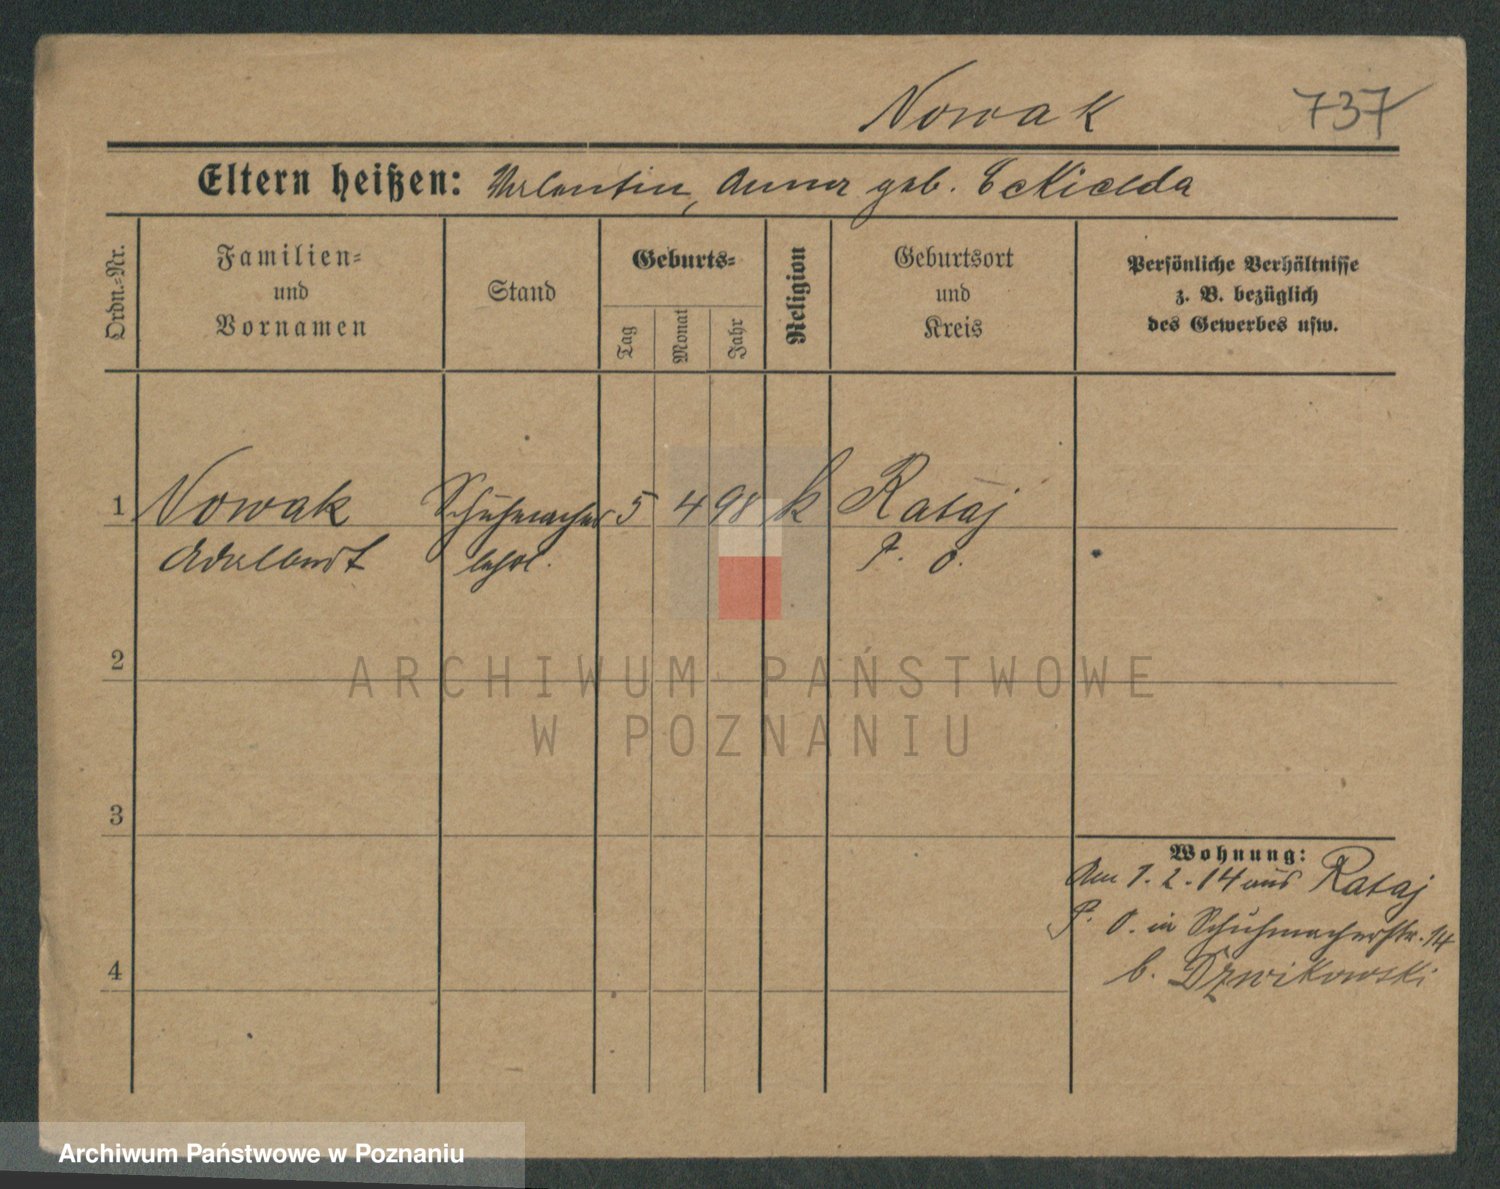 Nowak 737
Eltern heißen: Valentin, Anna geb.
Ordn.-Nr.
Familien-
und
Vornamen
Stand
Geburts-
Tag
Monat
Jahr
Religion
Geburtsort
und
Kreis
Persönliche Verhältnisse
z. B. bezüglich
des Gewerbes usw.
1 Nowak Schuhmacher 5 4 98 k Rataj
Adalbert lehrl. P. O.
2
ARCHIWUM PAŃSTWOWE
W POZNANIU
3
Wohnung:
Am 1.2.14 aus Rataj
P. O. in Schuhmacherstr. 14
b. Drwikowski
4
Archiwum Państwowe w Poznaniu